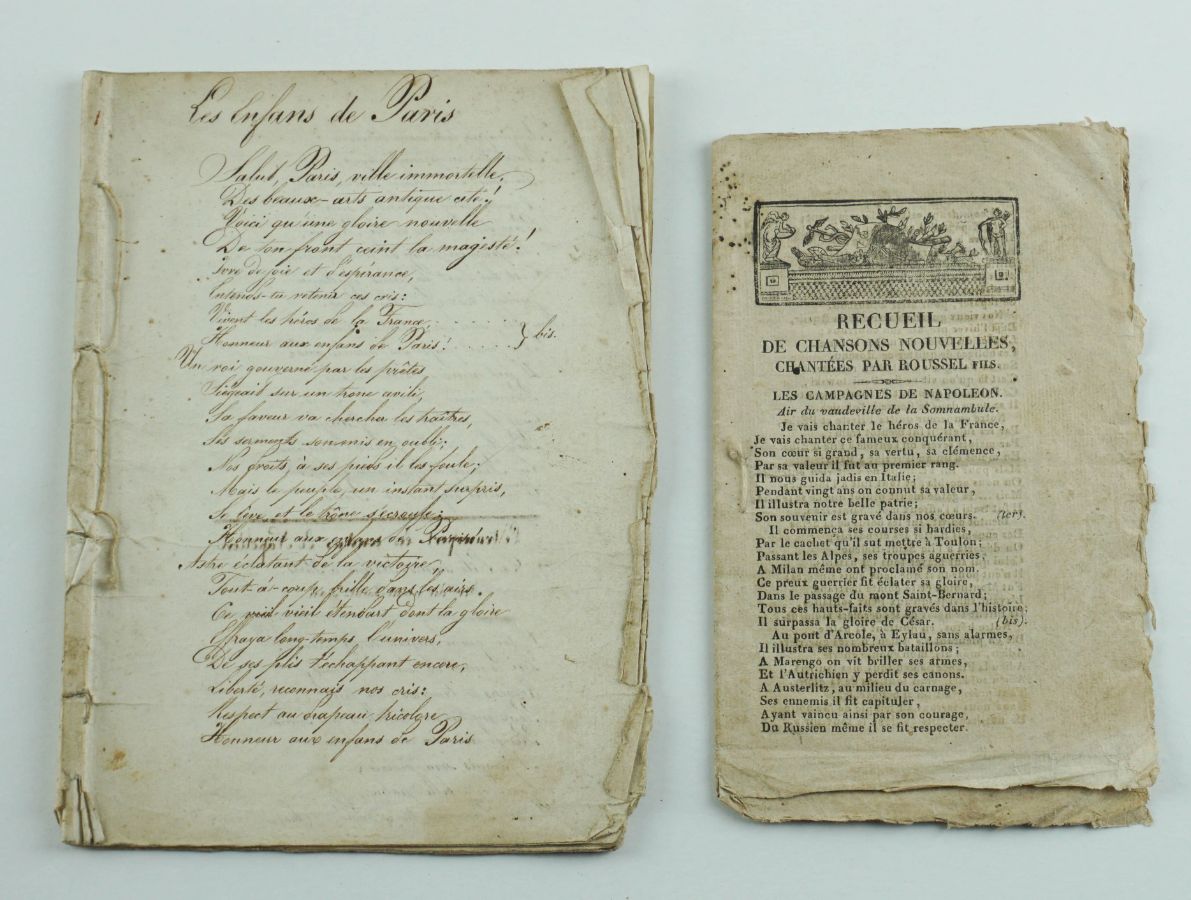 Les Enfans de Paris
Salut, Paris, ville immortelle,
Des beaux-arts antique cité!
Voici qu'une gloire nouvelle
De ton front ceint la magesté!
Ivre de joie et d'espérance,
Entends-tu retenir ces cris:
Vivent les héros de la France
Honneur aux enfans de Paris! } bis.
Un roi gouverné par les prêtres
Siégeait sur un trône avili,
Sa faveur va chercher les traîtres,
Ses serments sont mis en oubli;
Nos droits, à ses pieds il les foule;
Mais le peuple, un instant surpris,
Se lève, et le trône s'écroule:
Honneur aux enfans de Paris
Astre éclatant de la victoire,
Tout-à-coup brille dans les airs.
Ce vieil étendart dont la gloire
Effraya long-temps l'univers,
De ses plis t'échappant encore,
Liberté, reconnais nos cris:
Respect au drapeau tricolore
Honneur aux enfans de Paris
RECUEIL
DE CHANSONS NOUVELLES,
CHANTÉES PAR ROUSSEL FILS.
LES CAMPAGNES DE NAPOLEON.
Air du vaudeville de la Somnambule.
Je vais chanter le héros de la France,
Je vais chanter ce fameux conquérant,
Son cœur si grand, sa vertu, sa clémence,
Par sa valeur il fut au premier rang.
Il nous guida jadis en Italie;
Pendant vingt ans on connut sa valeur,
Il illustra notre belle patrie;
Son souvenir est gravé dans nos cœurs. (ter).
Il commença ses courses si hardies,
Par le cachet qu'il sut mettre à Toulon;
Passant les Alpes, ses troupes aguerries,
A Milan même ont proclamé son nom.
Ce preux guerrier fit éclater sa gloire,
Dans le passage du mont Saint-Bernard;
Tous ces hauts-faits sont gravés dans l'histoire;
Il surpassa la gloire de César. (bis).
Au pont d'Arcole, à Eylau, sans alarmes,
Il illustra ses nombreux bataillons;
A Marengo on vit briller ses armes,
Et l'Autrichien y perdit ses canons.
A Austerlitz, au milieu du carnage,
Ses ennemis il fit capituler,
Ayant vaincu ainsi par son courage,
Du Russien même il se fit respecter.